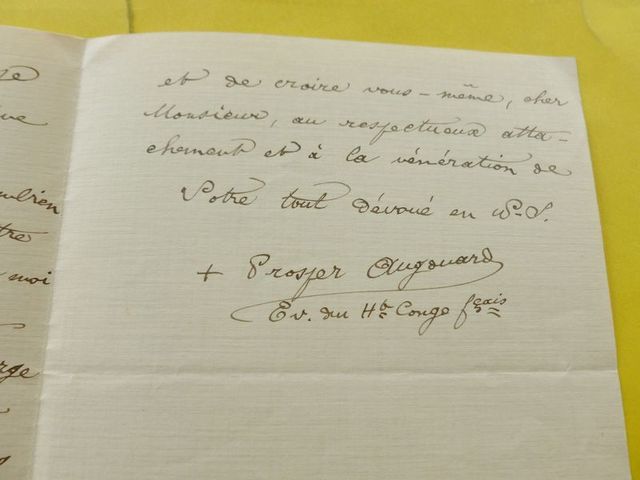 et de croire vous-même, cher
Monsieur, au respectueux atta-
chement et à la vénération de
Votre tout dévoué en N.-S.
+ Prosper Augouard
Ev. du Ht Congo fçais
tre
moi